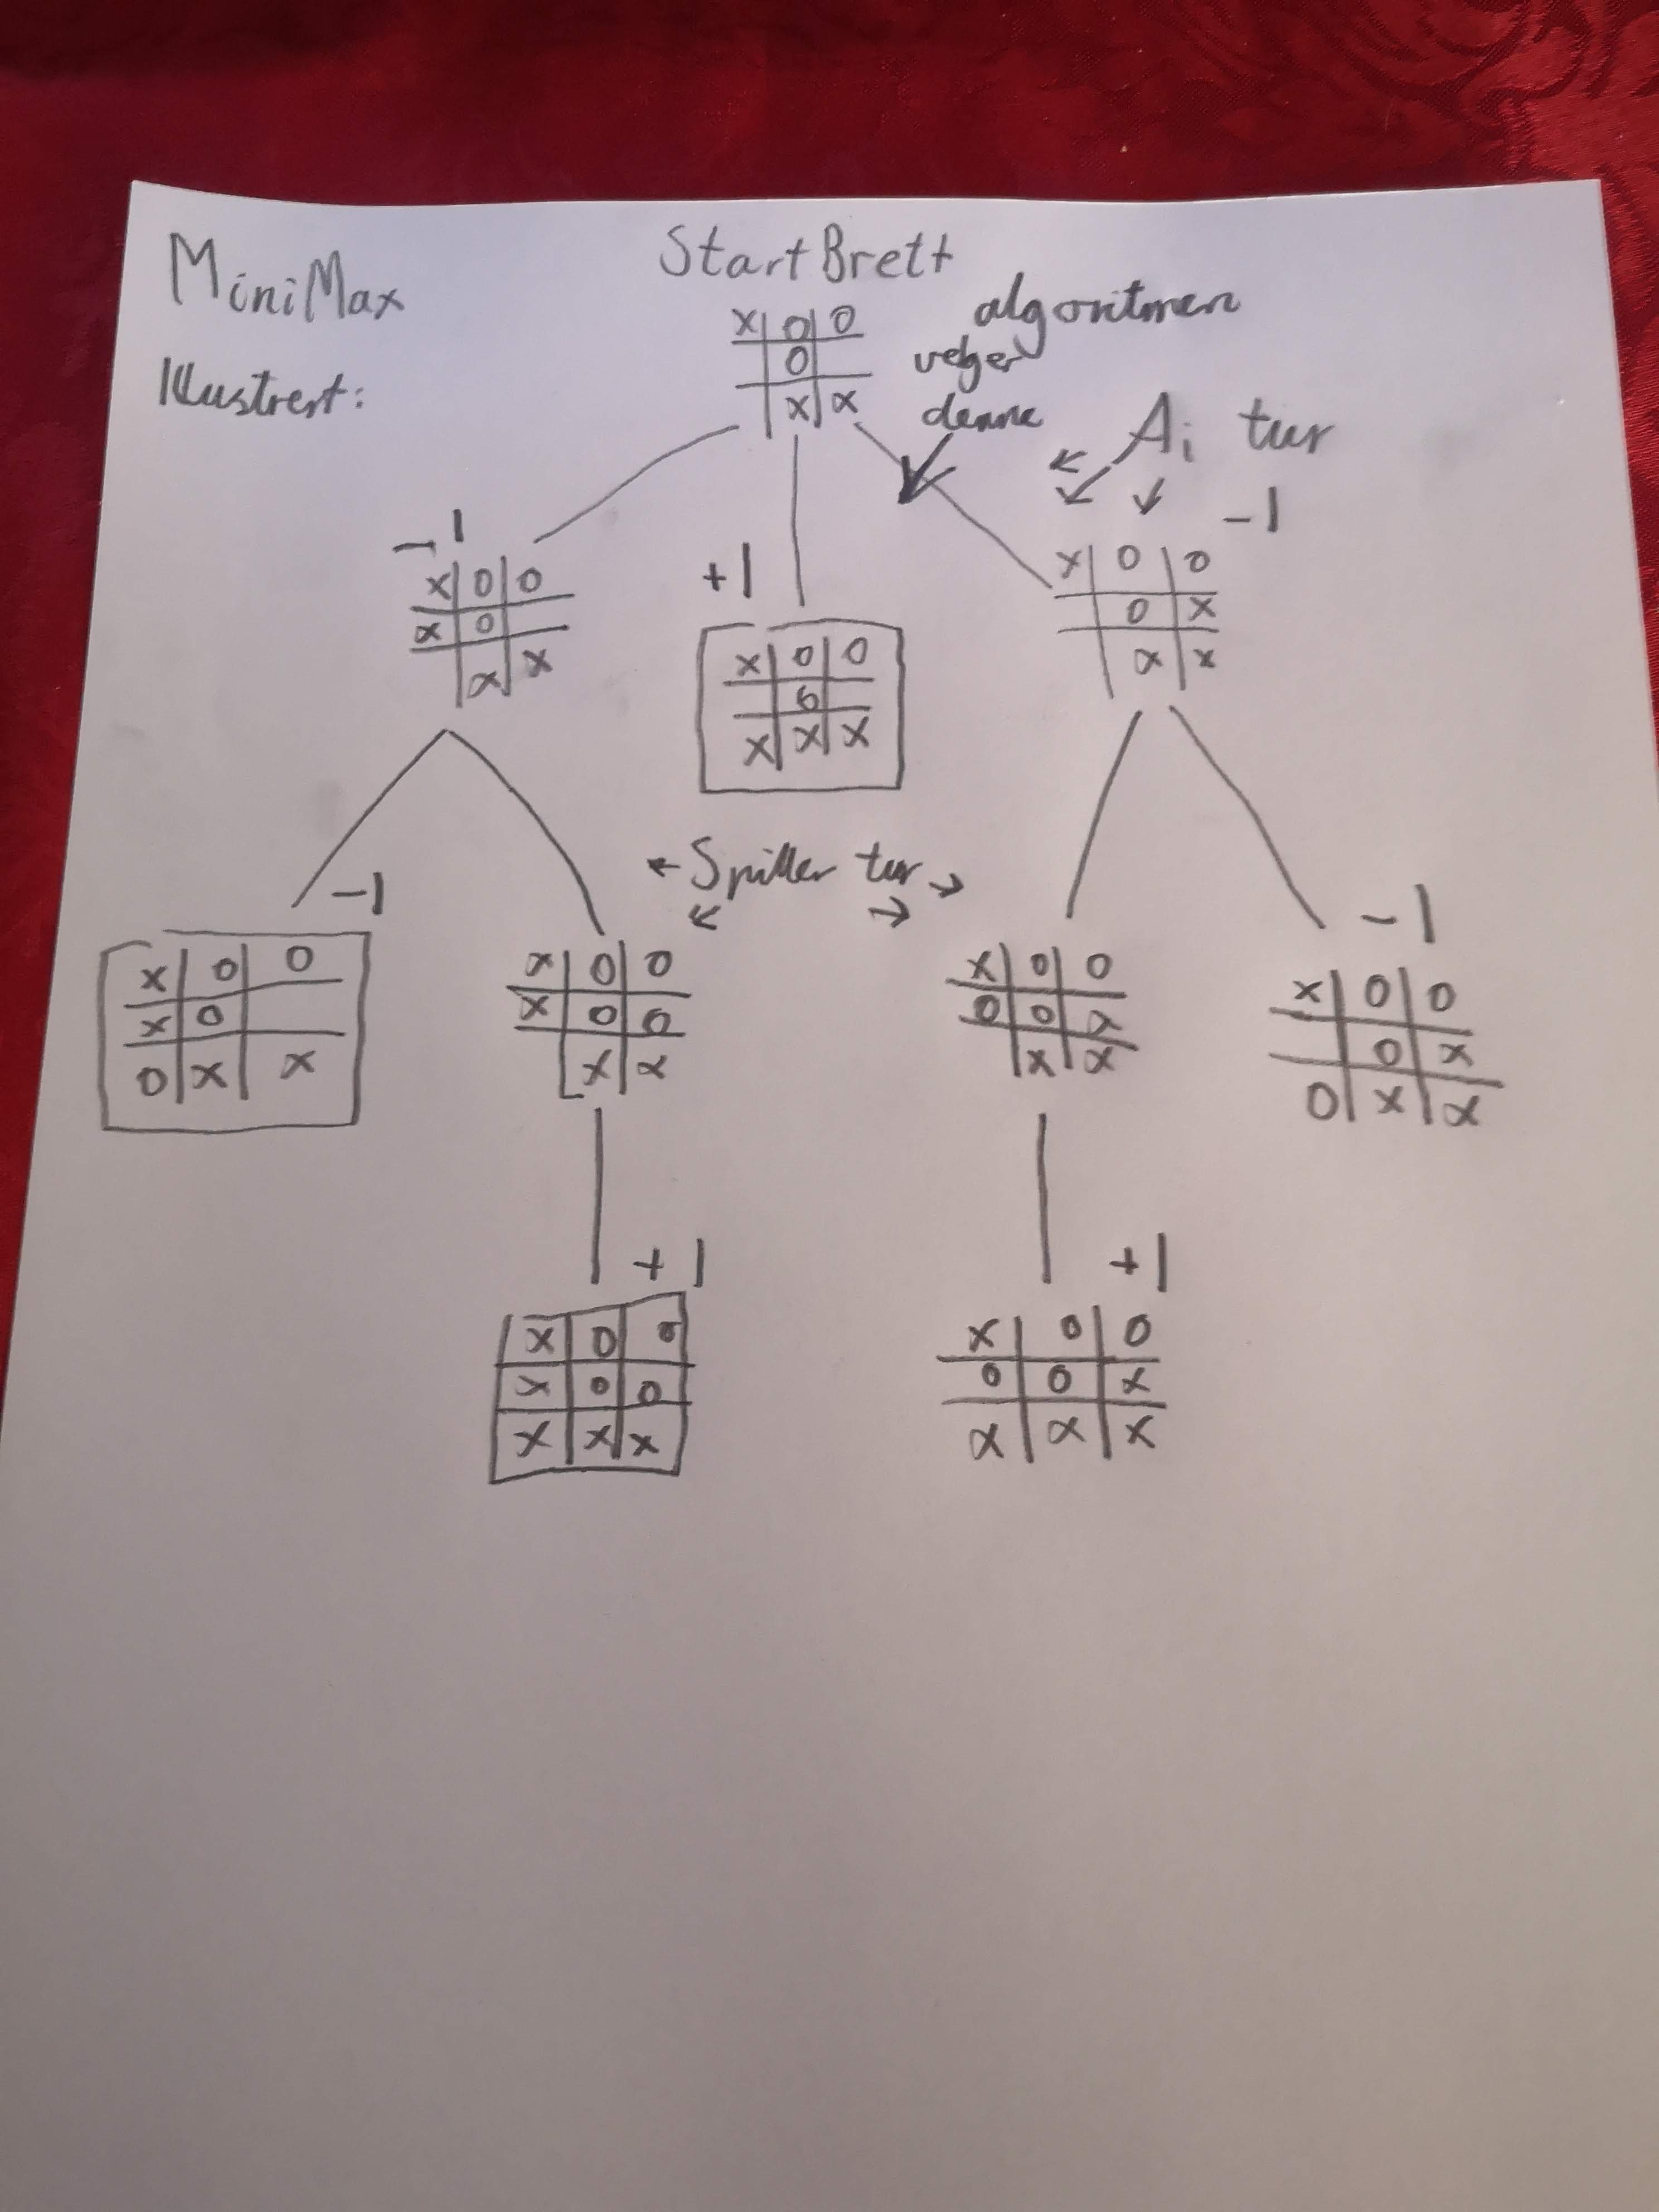 MiniMax
Illustrert:
StartBrett
algoritmen
velger
denne
Ai tur
X O O
O
X X
-1
X O O
X O
X X
+1
X O O
O
X X X
-1
X O O
O X
X X
← Spiller tur →
-1
X O O
X O
O X X
X O O
X O O
X X
X O O
O O X
X X
-1
X O O
O X
O X X
+1
X O O
X O O
X X X
+1
X O O
O O X
X X X